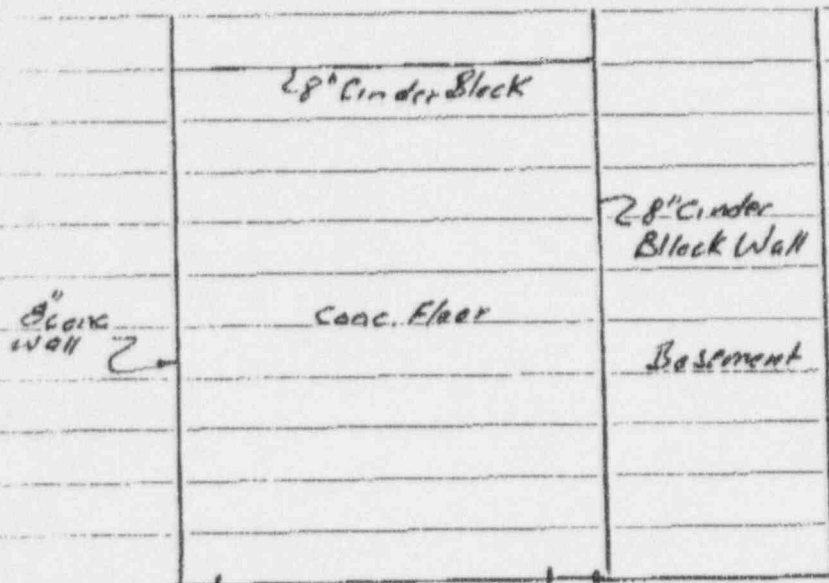 8" Cinder Block
8" Cinder
Bllock Wall
8" Conc
Wall
Conc. Floor
Basement